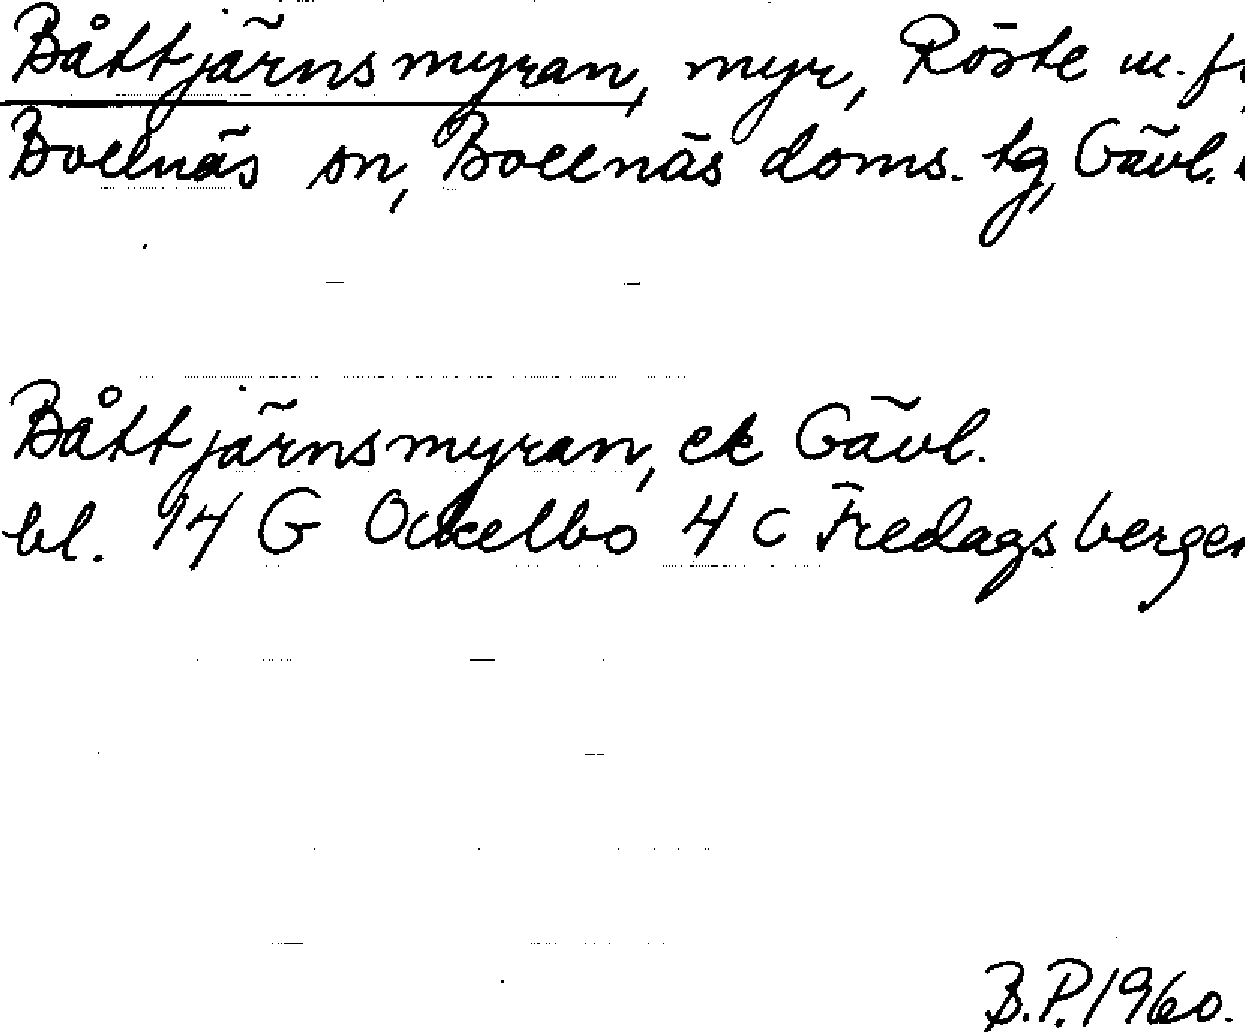 Båttjärnsmyran, myr, Röste m. fl
Bollnäs sn, Bollnäs doms. tg, Gävl.
Båttjärnsmyran, ek Gävl.
bl. 14 G Ockelbo 4 C Fredagsbergen
B.P. 1960.